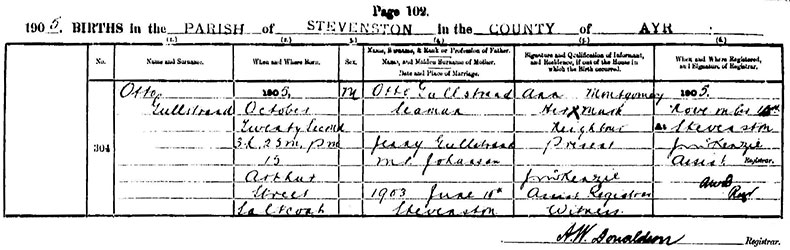 Page 102.
1905. BIRTHS in the PARISH of STEVENSTON in the COUNTY of AYR
(1.) (2.) (3.) (4.) (5.) (6.)
No. Name and Surname. When and Where Born. Sex. Name, Surname, & Rank or Profession of Father. Name, and Maiden Surname of Mother. Date and Place of Marriage. Signature and Qualification of Informant, and Residence, if out of the House in which the Birth occurred. When and Where Registered, and Signature of Registrar.
Otto 1905, M Otto Gullstrand Ann Montgomery 1905,
Gullstrand October Seaman Her X Mark November
Twenty Second Neighbour At Stevenston
304 3h. 25m. PM Jenny Gullstrand Present J. McKenzie
15 M.S. Johansen Assist Registrar.
Arthur J. McKenzie
Street 1903 June 10th Assist Registrar
Saltcoats Stevenston Witness.
A.W. Donaldson Registrar.